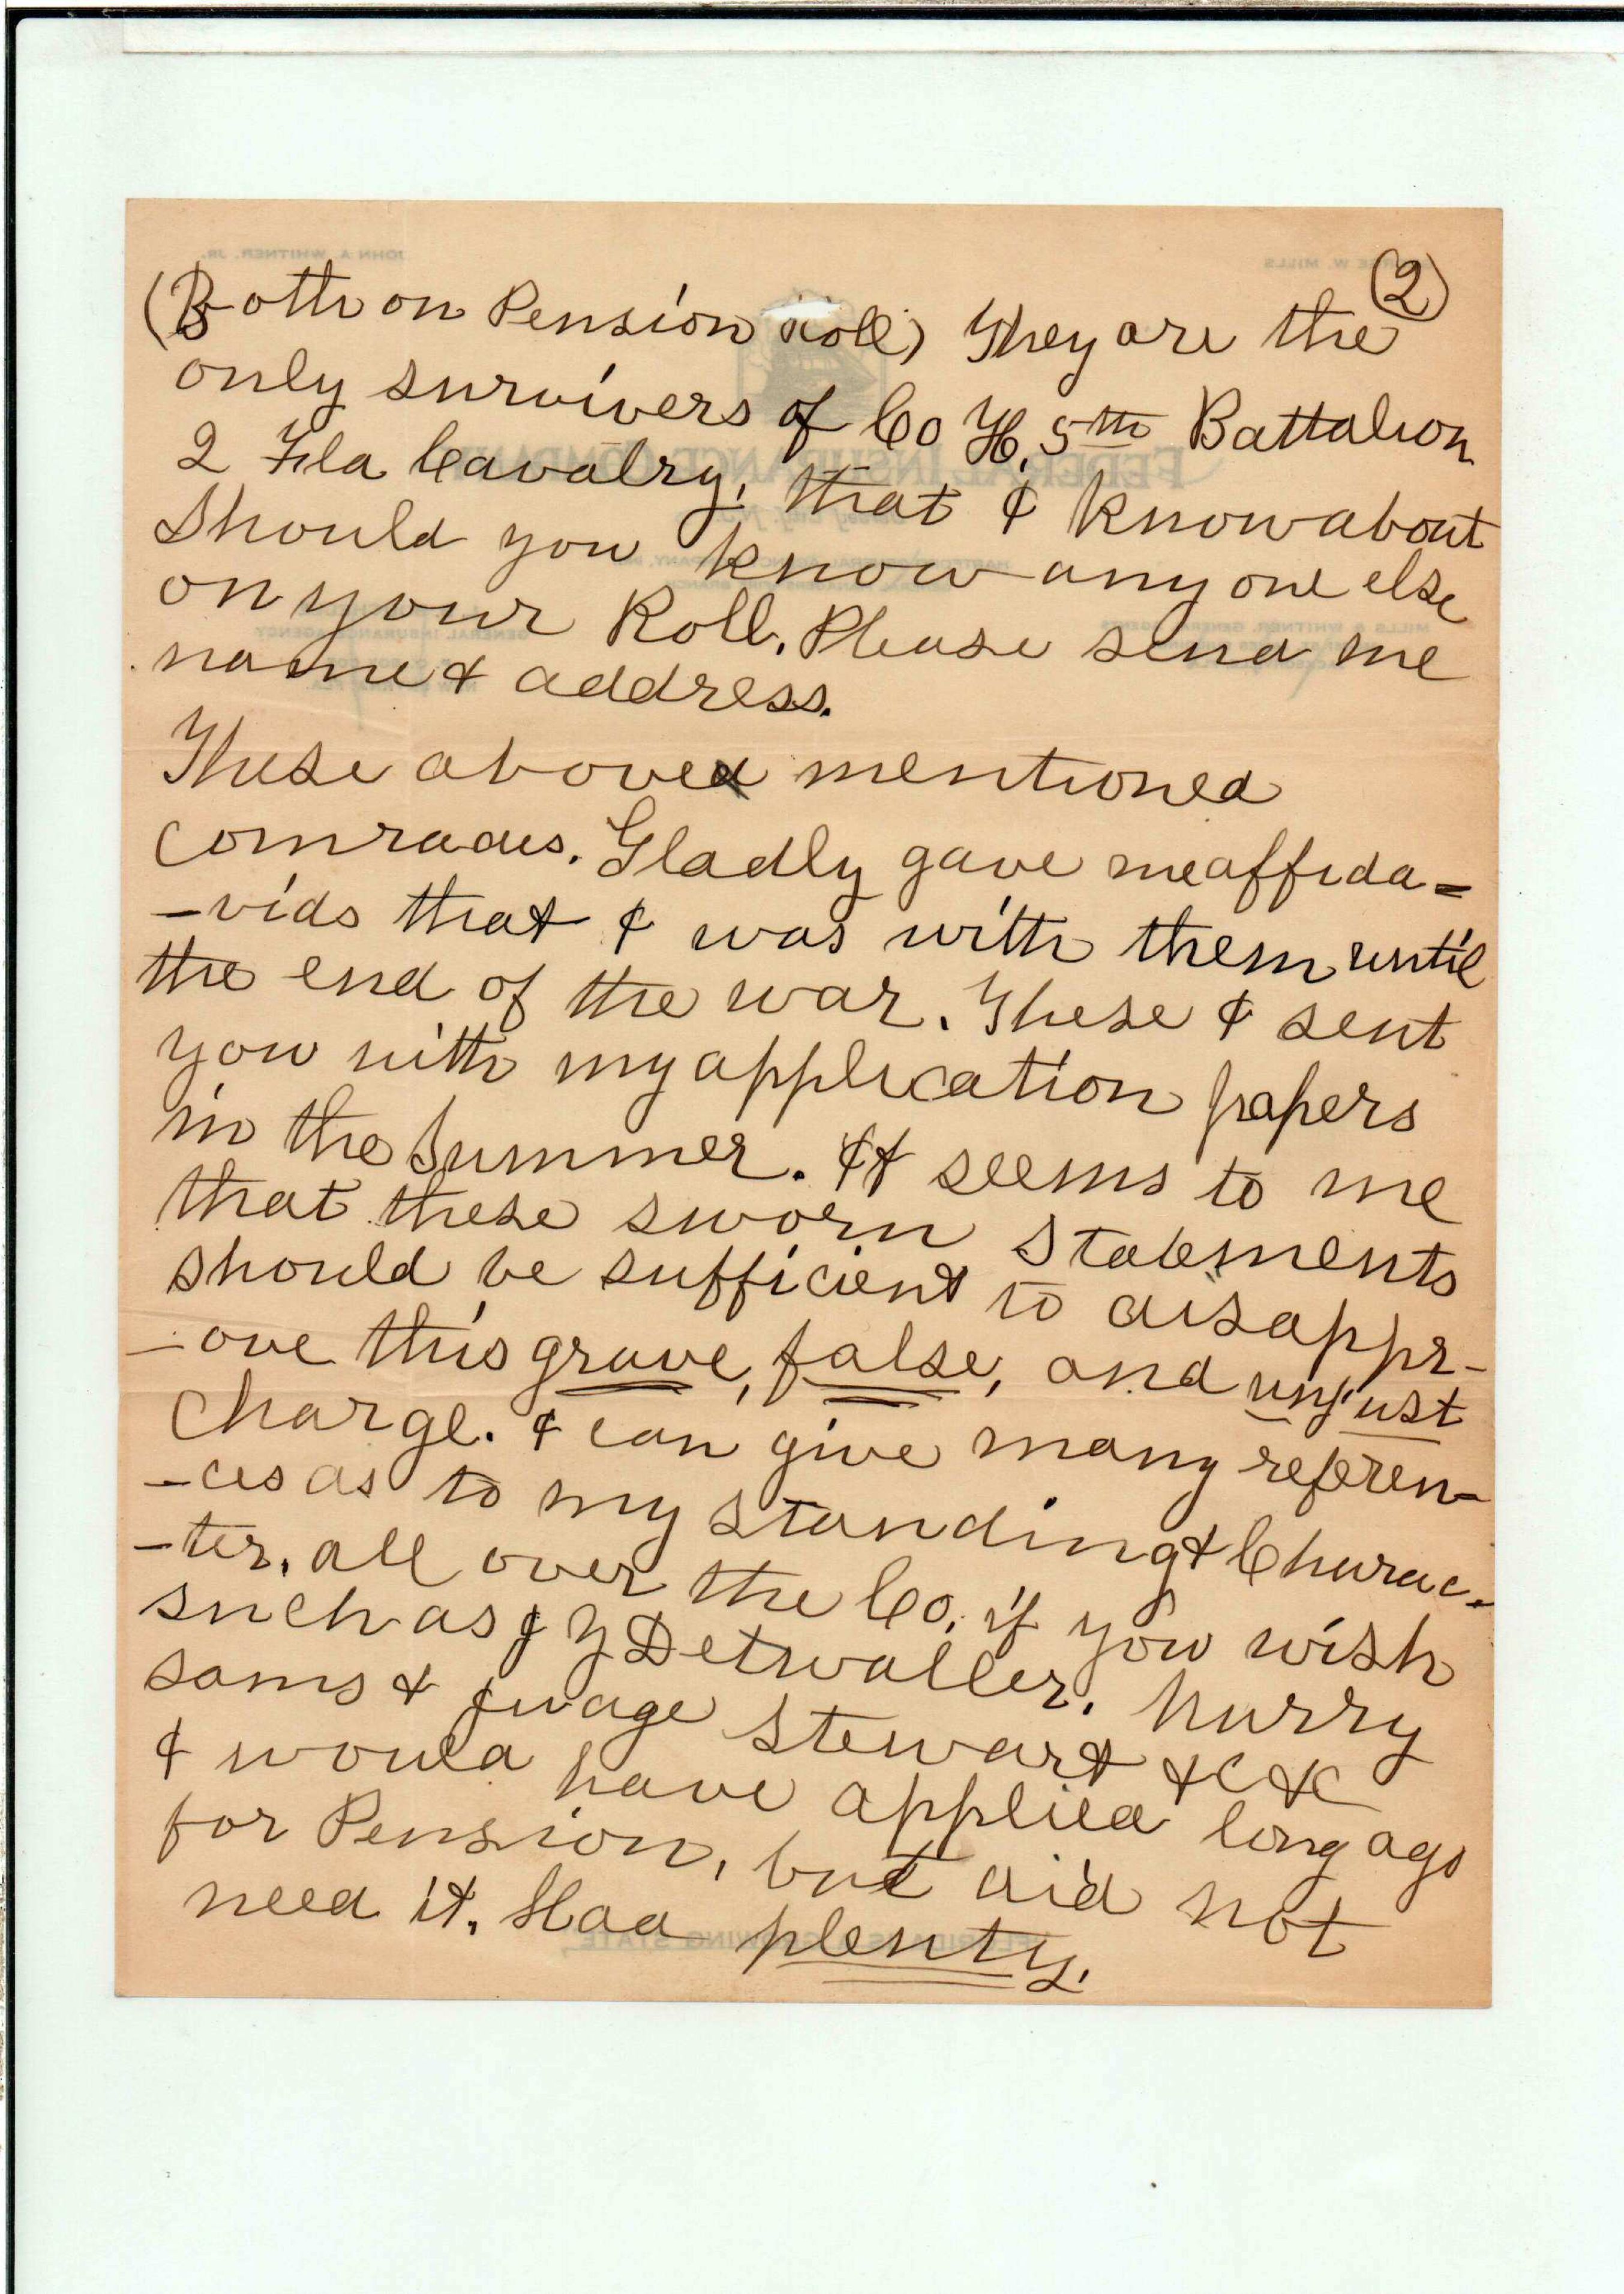 (2)
(Both on Pension Roll) They are the
only survivers of Co H, 5th Battalion
2 Fla Cavalry, that I know about
Should you know any one else
on your Roll. Please send me
name & address.
These above mentioned
Comrades. Gladly gave me affida=
-vids that I was with them until
the end of the war. These I sent
you with my application papers
in the Summer. It seems to me
that these sworn Statements
should be sufficient to disappr-
-ove this grave, false, and unjust
Charge. I can give many referen-
-ces as to my standing & Charac-
-ter, all over the Co, if you wish
such as J Y Detwaller. Murry
sams & Judge Stewart &c &c
I would have applied long ago
for Pension, but did not
need it. Had plenty.
JOHN A WHITNER, JR.
W. MILLS
FEDERAL INSURANCE COMPANY
MILLS & WHITNER, GENERAL
GENERAL INSURANCE AGENCY